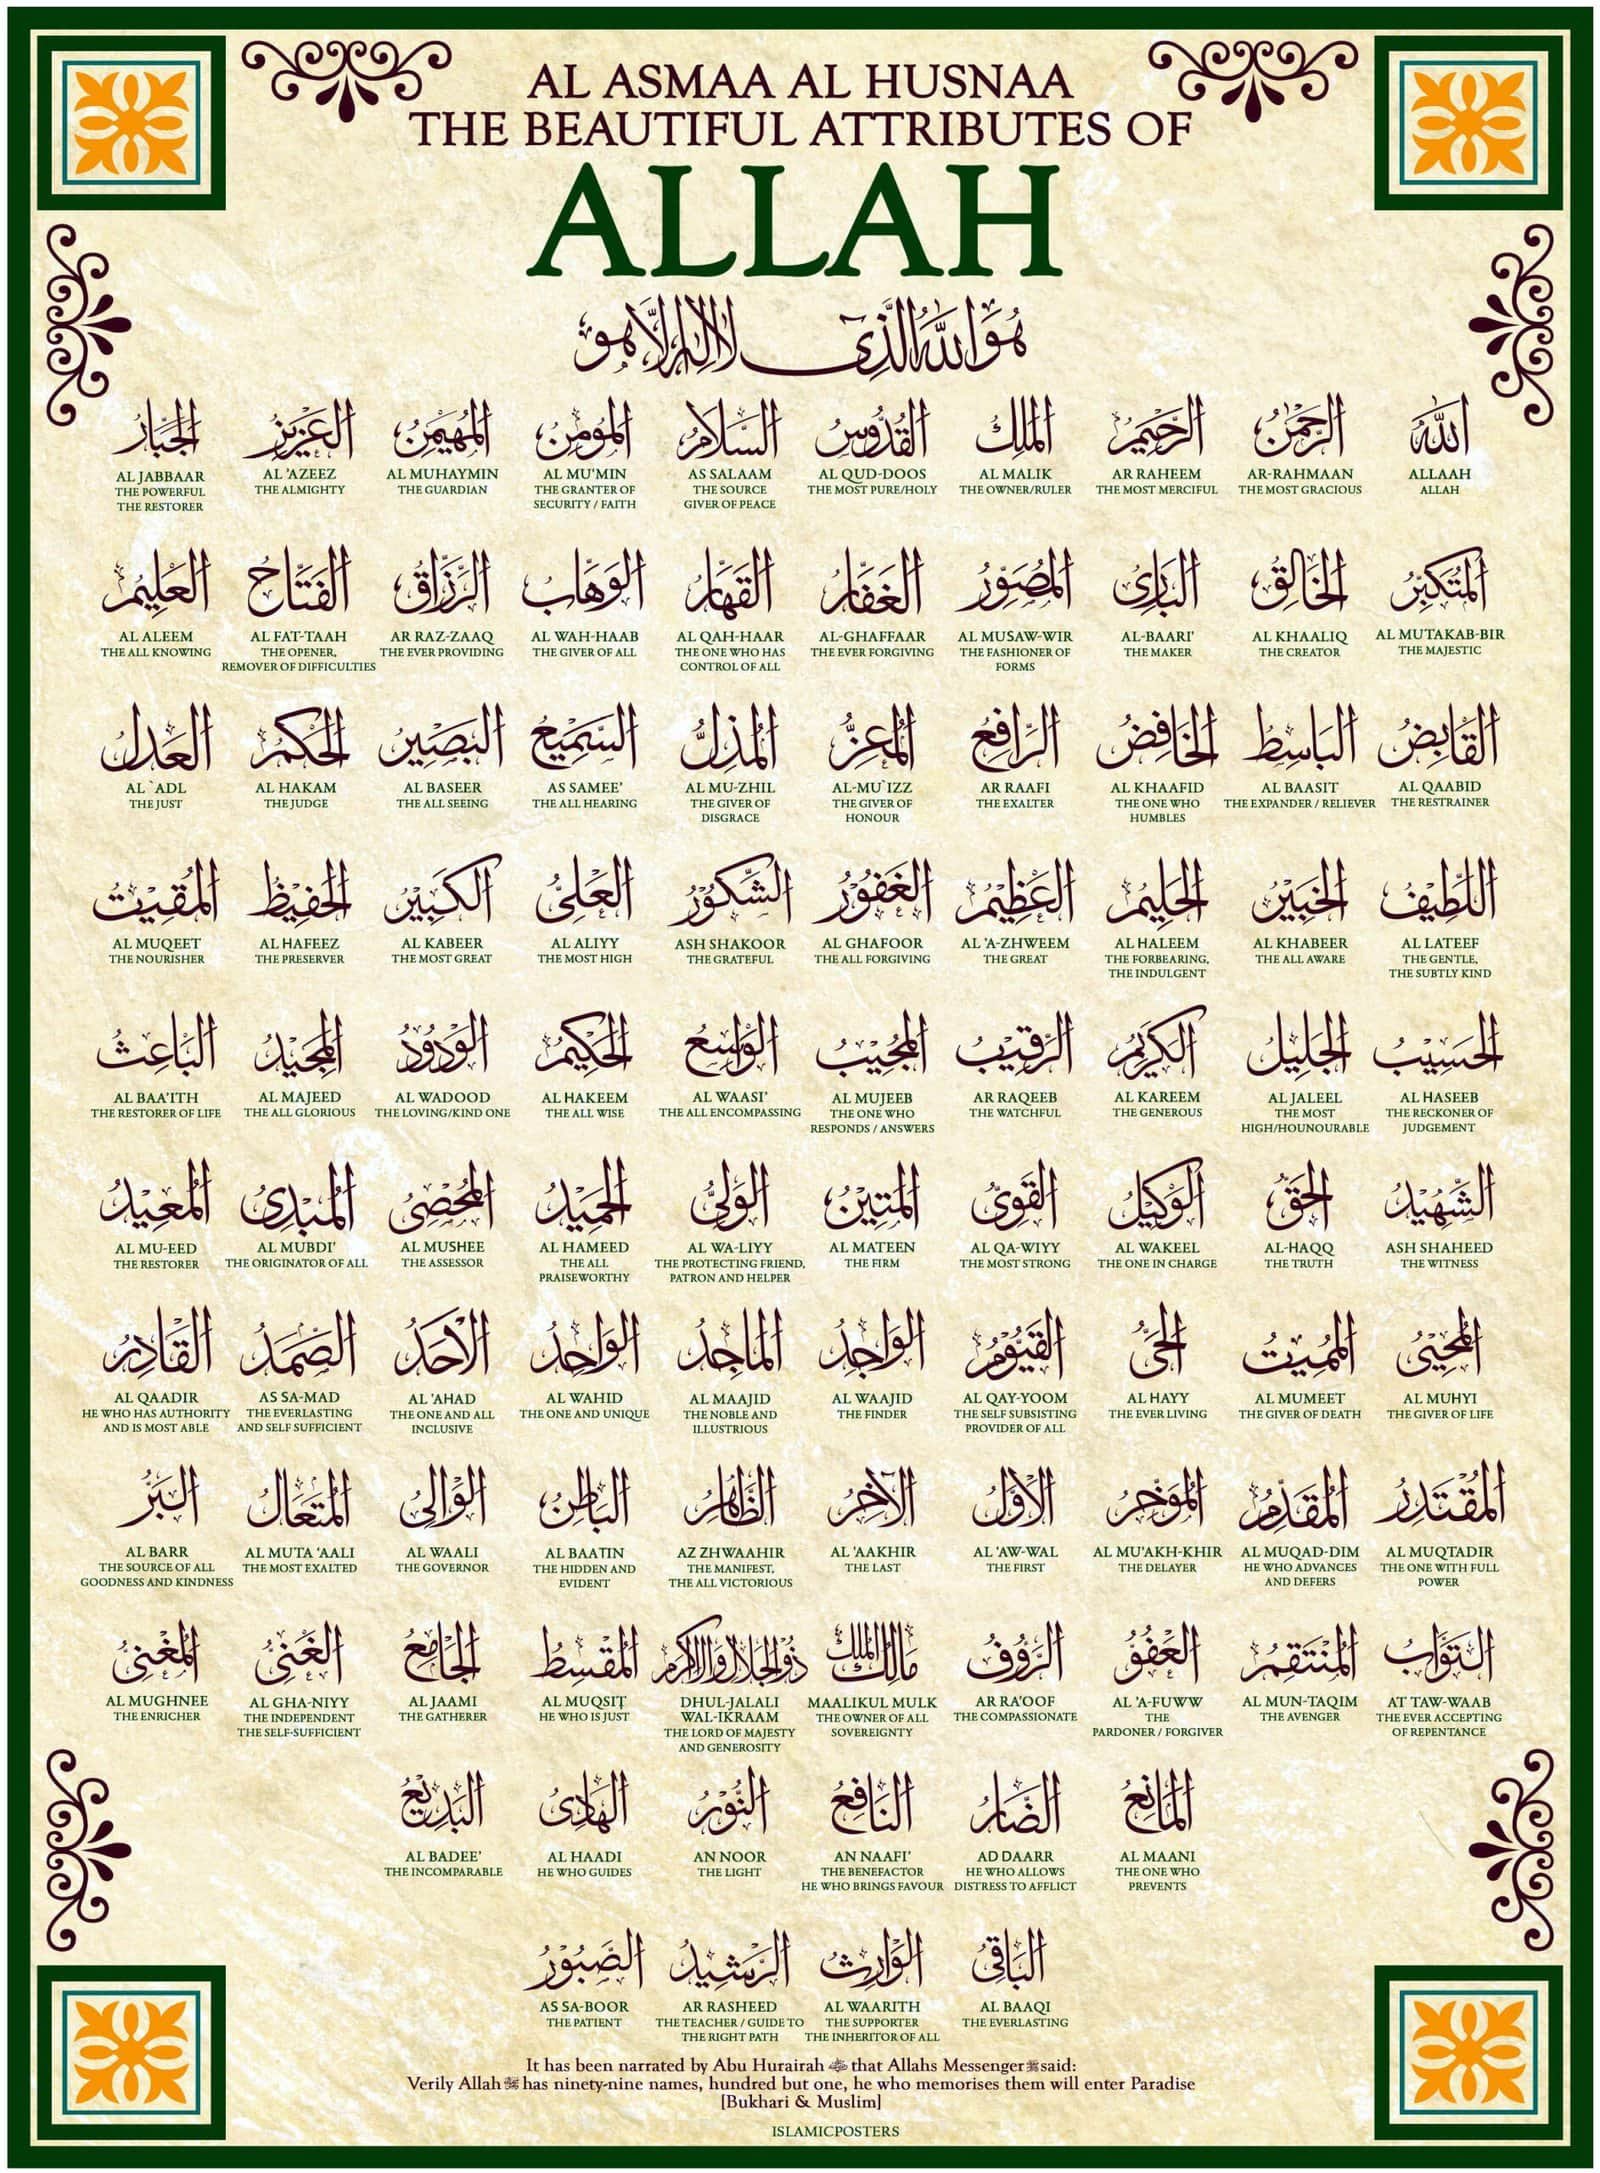 AL ASMAA AL HUSNAA
THE BEAUTIFUL ATTRIBUTES OF
ALLAH
هُوَ اللهُ الَّذِي لَا إِلٰهَ إِلَّا هُوَ
الله
ALLAAH
ALLAH
الرَّحْمٰنُ
AR-RAHMAAN
THE MOST GRACIOUS
الرَّحِيْمُ
AR RAHEEM
THE MOST MERCIFUL
المَلِكُ
AL MALIK
THE OWNER/RULER
القُدُّوسُ
AL QUD-DOOS
THE MOST PURE/HOLY
السَّلَامُ
AS SALAAM
THE SOURCE
GIVER OF PEACE
المُؤْمِنُ
AL MU'MIN
THE GRANTER OF
SECURITY / FAITH
المُهَيْمِنُ
AL MUHAYMIN
THE GUARDIAN
العَزِيزُ
AL 'AZEEZ
THE ALMIGHTY
الجَبَّارُ
AL JABBAAR
THE POWERFUL
THE RESTORER
المُتَكَبِّرُ
AL MUTAKAB-BIR
THE MAJESTIC
الخَالِقُ
AL KHAALIQ
THE CREATOR
البَارِئُ
AL-BAARI'
THE MAKER
المُصَوِّرُ
AL MUSAW-WIR
THE FASHIONER OF
FORMS
الغَفَّارُ
AL-GHAFFAAR
THE EVER FORGIVING
القَهَّارُ
AL QAH-HAAR
THE ONE WHO HAS
CONTROL OF ALL
الوَهَّابُ
AL WAH-HAAB
THE GIVER OF ALL
الرَّزَّاقُ
AR RAZ-ZAAQ
THE EVER PROVIDING
الفَتَّاحُ
AL FAT-TAAH
THE OPENER,
REMOVER OF DIFFICULTIES
العَلِيْمُ
AL ALEEM
THE ALL KNOWING
القَابِضُ
AL QAABID
THE RESTRAINER
البَاسِطُ
AL BAASIT
THE EXPANDER / RELIEVER
الخَافِضُ
AL KHAAFID
THE ONE WHO
HUMBLES
الرَّافِعُ
AR RAAFI
THE EXALTER
المُعِزُّ
AL-MU`IZZ
THE GIVER OF
HONOUR
المُذِلُّ
AL MU-ZHIL
THE GIVER OF
DISGRACE
السَّمِيْعُ
AS SAMEE'
THE ALL HEARING
البَصِيْرُ
AL BASEER
THE ALL SEEING
الحَكَمُ
AL HAKAM
THE JUDGE
العَدْلُ
AL `ADL
THE JUST
اللَّطِيْفُ
AL LATEEF
THE GENTLE,
THE SUBTLY KIND
الخَبِيْرُ
AL KHABEER
THE ALL AWARE
الحَلِيْمُ
AL HALEEM
THE FORBEARING,
THE INDULGENT
العَظِيْمُ
AL 'A-ZHWEEM
THE GREAT
الغَفُوْرُ
AL GHAFOOR
THE ALL FORGIVING
الشَّكُوْرُ
ASH SHAKOOR
THE GRATEFUL
العَلِيُّ
AL ALIYY
THE MOST HIGH
الكَبِيْرُ
AL KABEER
THE MOST GREAT
الحَفِيْظُ
AL HAFEEZ
THE PRESERVER
المُقِيْتُ
AL MUQEET
THE NOURISHER
الحَسِيْبُ
AL HASEEB
THE RECKONER OF
JUDGEMENT
الجَلِيْلُ
AL JALEEL
THE MOST
HIGH/HOUNOURABLE
الكَرِيْمُ
AL KAREEM
THE GENEROUS
الرَّقِيْبُ
AR RAQEEB
THE WATCHFUL
المُجِيْبُ
AL MUJEEB
THE ONE WHO
RESPONDS / ANSWERS
الوَاسِعُ
AL WAASI'
THE ALL ENCOMPASSING
الحَكِيْمُ
AL HAKEEM
THE ALL WISE
الوَدُوْدُ
AL WADOOD
THE LOVING/KIND ONE
المَجِيْدُ
AL MAJEED
THE ALL GLORIOUS
البَاعِثُ
AL BAA'ITH
THE RESTORER OF LIFE
الشَّهِيْدُ
ASH SHAHEED
THE WITNESS
الحَقُّ
AL-HAQQ
THE TRUTH
الوَكِيْلُ
AL WAKEEL
THE ONE IN CHARGE
القَوِيُّ
AL QA-WIYY
THE MOST STRONG
المَتِيْنُ
AL MATEEN
THE FIRM
الوَلِيُّ
AL WA-LIYY
THE PROTECTING FRIEND,
PATRON AND HELPER
الحَمِيْدُ
AL HAMEED
THE ALL
PRAISEWORTHY
المُحْصِي
AL MUSHEE
THE ASSESSOR
المُبْدِئُ
AL MUBDI'
THE ORIGINATOR OF ALL
المُعِيْدُ
AL MU-EED
THE RESTORER
المُحْيِي
AL MUHYI
THE GIVER OF LIFE
المُمِيْتُ
AL MUMEET
THE GIVER OF DEATH
الحَيُّ
AL HAYY
THE EVER LIVING
القَيُّوْمُ
AL QAY-YOOM
THE SELF SUBSISTING
PROVIDER OF ALL
الوَاجِدُ
AL WAAJID
THE FINDER
المَاجِدُ
AL MAAJID
THE NOBLE AND
ILLUSTRIOUS
الوَاحِدُ
AL WAHID
THE ONE AND UNIQUE
الأَحَدُ
AL 'AHAD
THE ONE AND ALL
INCLUSIVE
الصَّمَدُ
AS SA-MAD
THE EVERLASTING
AND SELF SUFFICIENT
القَادِرُ
AL QAADIR
HE WHO HAS AUTHORITY
AND IS MOST ABLE
المُقْتَدِرُ
AL MUQTADIR
THE ONE WITH FULL
POWER
المُقَدِّمُ
AL MUQAD-DIM
HE WHO ADVANCES
AND DEFERS
المُؤَخِّرُ
AL MU'AKH-KHIR
THE DELAYER
الأَوَّلُ
AL 'AW-WAL
THE FIRST
الآخِرُ
AL 'AAKHIR
THE LAST
الظَّاهِرُ
AZ ZHWAAHIR
THE MANIFEST,
THE ALL VICTORIOUS
البَاطِنُ
AL BAATIN
THE HIDDEN AND
EVIDENT
الوَالِي
AL WAALI
THE GOVERNOR
المُتَعَالُ
AL MUTA 'AALI
THE MOST EXALTED
البَرُّ
AL BARR
THE SOURCE OF ALL
GOODNESS AND KINDNESS
التَّوَّابُ
AT TAW-WAAB
THE EVER ACCEPTING
OF REPENTANCE
المُنْتَقِمُ
AL MUN-TAQIM
THE AVENGER
العَفُوُّ
AL 'A-FUWW
THE
PARDONER / FORGIVER
الرَّؤُفُ
AR RA'OOF
THE COMPASSIONATE
مَالِكُ المُلْكِ
MAALIKUL MULK
THE OWNER OF ALL
SOVEREIGNTY
ذُو الجَلَالِ وَالإِكْرَامِ
DHUL-JALALI
WAL-IKRAAM
THE LORD OF MAJESTY
AND GENEROSITY
المُقْسِطُ
AL MUQSIT
HE WHO IS JUST
الجَامِعُ
AL JAAMI
THE GATHERER
الغَنِيُّ
AL GHA-NIYY
THE INDEPENDENT
THE SELF-SUFFICIENT
المُغْنِيُ
AL MUGHNEE
THE ENRICHER
المَانِعُ
AL MAANI
THE ONE WHO
PREVENTS
الضَّارُ
AD DAARR
HE WHO ALLOWS
DISTRESS TO AFFLICT
النَّافِعُ
AN NAAFI'
THE BENEFACTOR
HE WHO BRINGS FAVOUR
النُّوْرُ
AN NOOR
THE LIGHT
الهَادِي
AL HAADI
HE WHO GUIDES
البَدِيْعُ
AL BADEE'
THE INCOMPARABLE
البَاقِي
AL BAAQI
THE EVERLASTING
الوَارِثُ
AL WAARITH
THE SUPPORTER
THE INHERITOR OF ALL
الرَّشِيْدُ
AR RASHEED
THE TEACHER / GUIDE TO
THE RIGHT PATH
الصَّبُوْرُ
AS SA-BOOR
THE PATIENT
It has been narrated by Abu Hurairah that Allahs Messenger ﷺ said:
Verily Allah has ninety-nine names, hundred but one, he who memorises them will enter Paradise
[Bukhari & Muslim]
ISLAMICPOSTERS